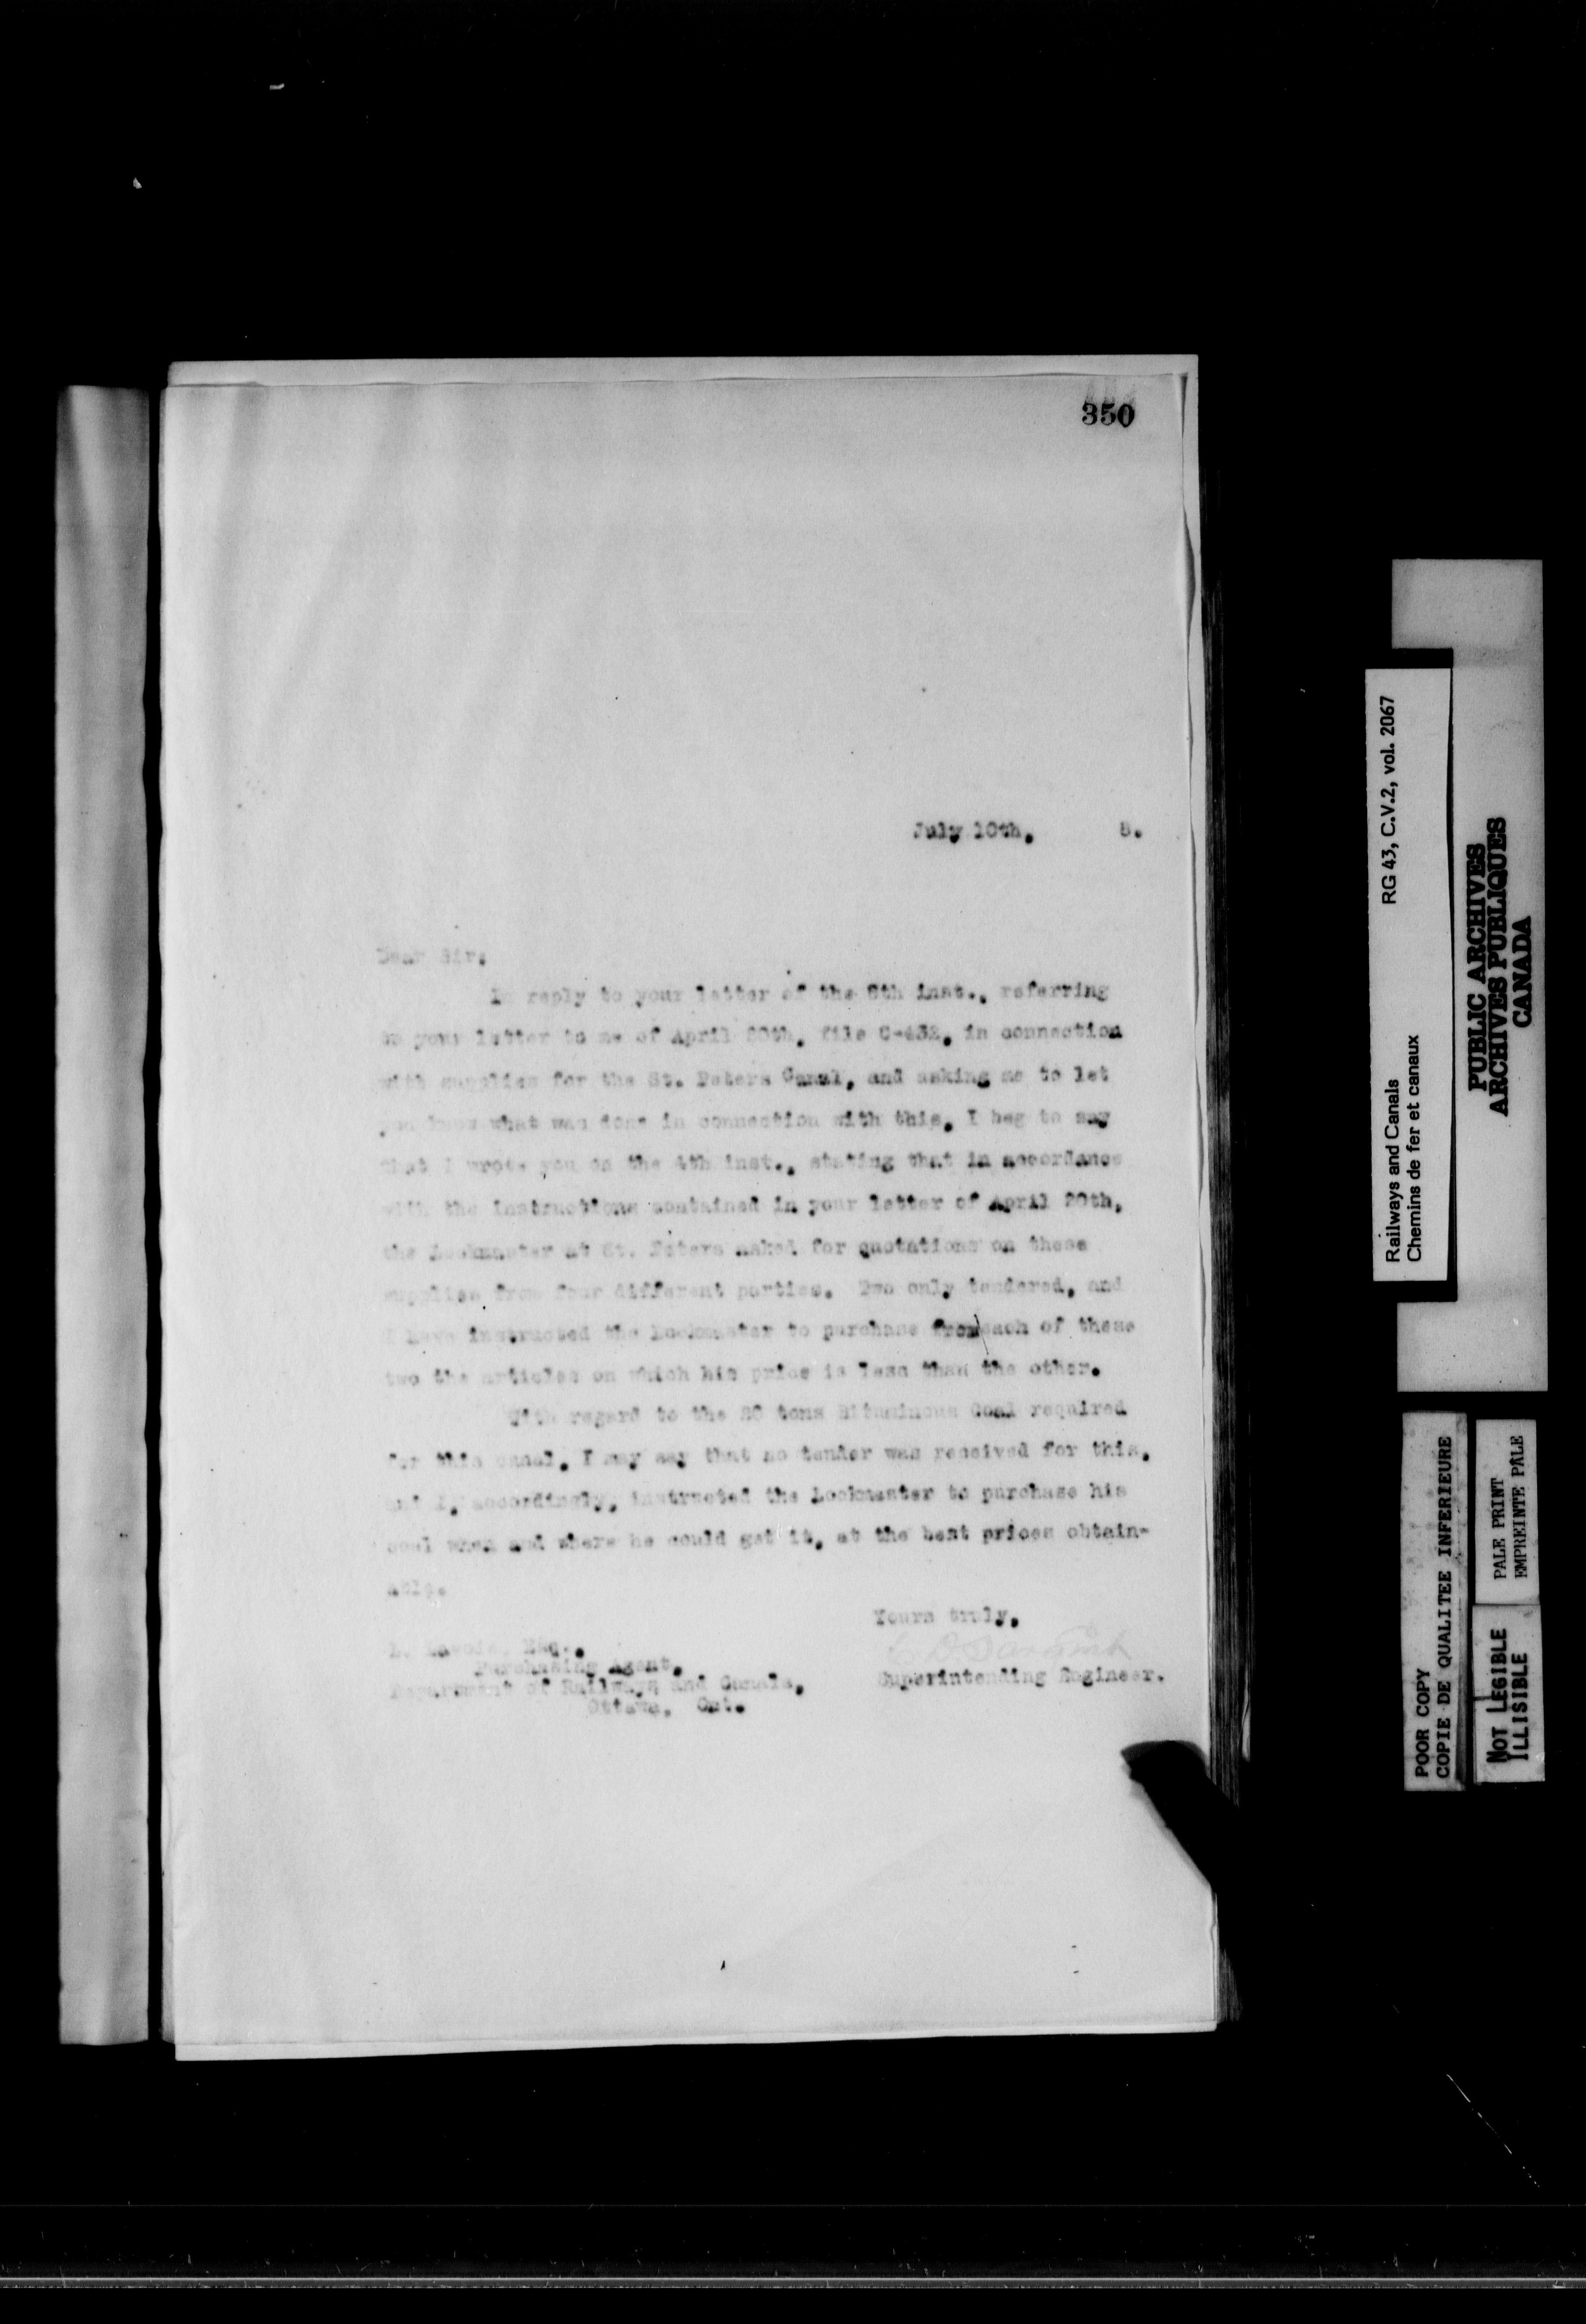 350
July 10th, 8.
Dear Sir,
In reply to your letter of the 8th inst., referring
to your letter to me of April 20th, file C-432, in connection
with supplies for the St. Peters Canal, and asking me to let
you know what was done in connection with this, I beg to say
that I wrote you on the 4th inst., stating that in accordance
with the instructions contained in your letter of April 20th,
the Lockmaster at St. Peters asked for quotations on these
supplies from four different parties. Two only tendered, and
I have instructed the Lockmaster to purchase from each of these
two the articles on which his price is less than the other.
With regard to the 20 tons Bituminous Coal required
for this canal, I may say that no tender was received for this,
and I, accordingly, instructed the Lockmaster to purchase his
coal when and where he could get it, at the best prices obtain-
able.
Yours truly,
Superintending Engineer.
Esq.,
Purchasing Agent,
Department of Railways and Canals,
Ottawa, Ont.
Railways and Canals RG 43, C.V.2, vol. 2067
Chemins de fer et canaux
PUBLIC ARCHIVES
ARCHIVES PUBLIQUES
CANADA
POOR COPY
COPIE DE QUALITEE INFERIEURE
PALE PRINT
EMPREINTE PALE
NOT LEGIBLE
ILLISIBLE